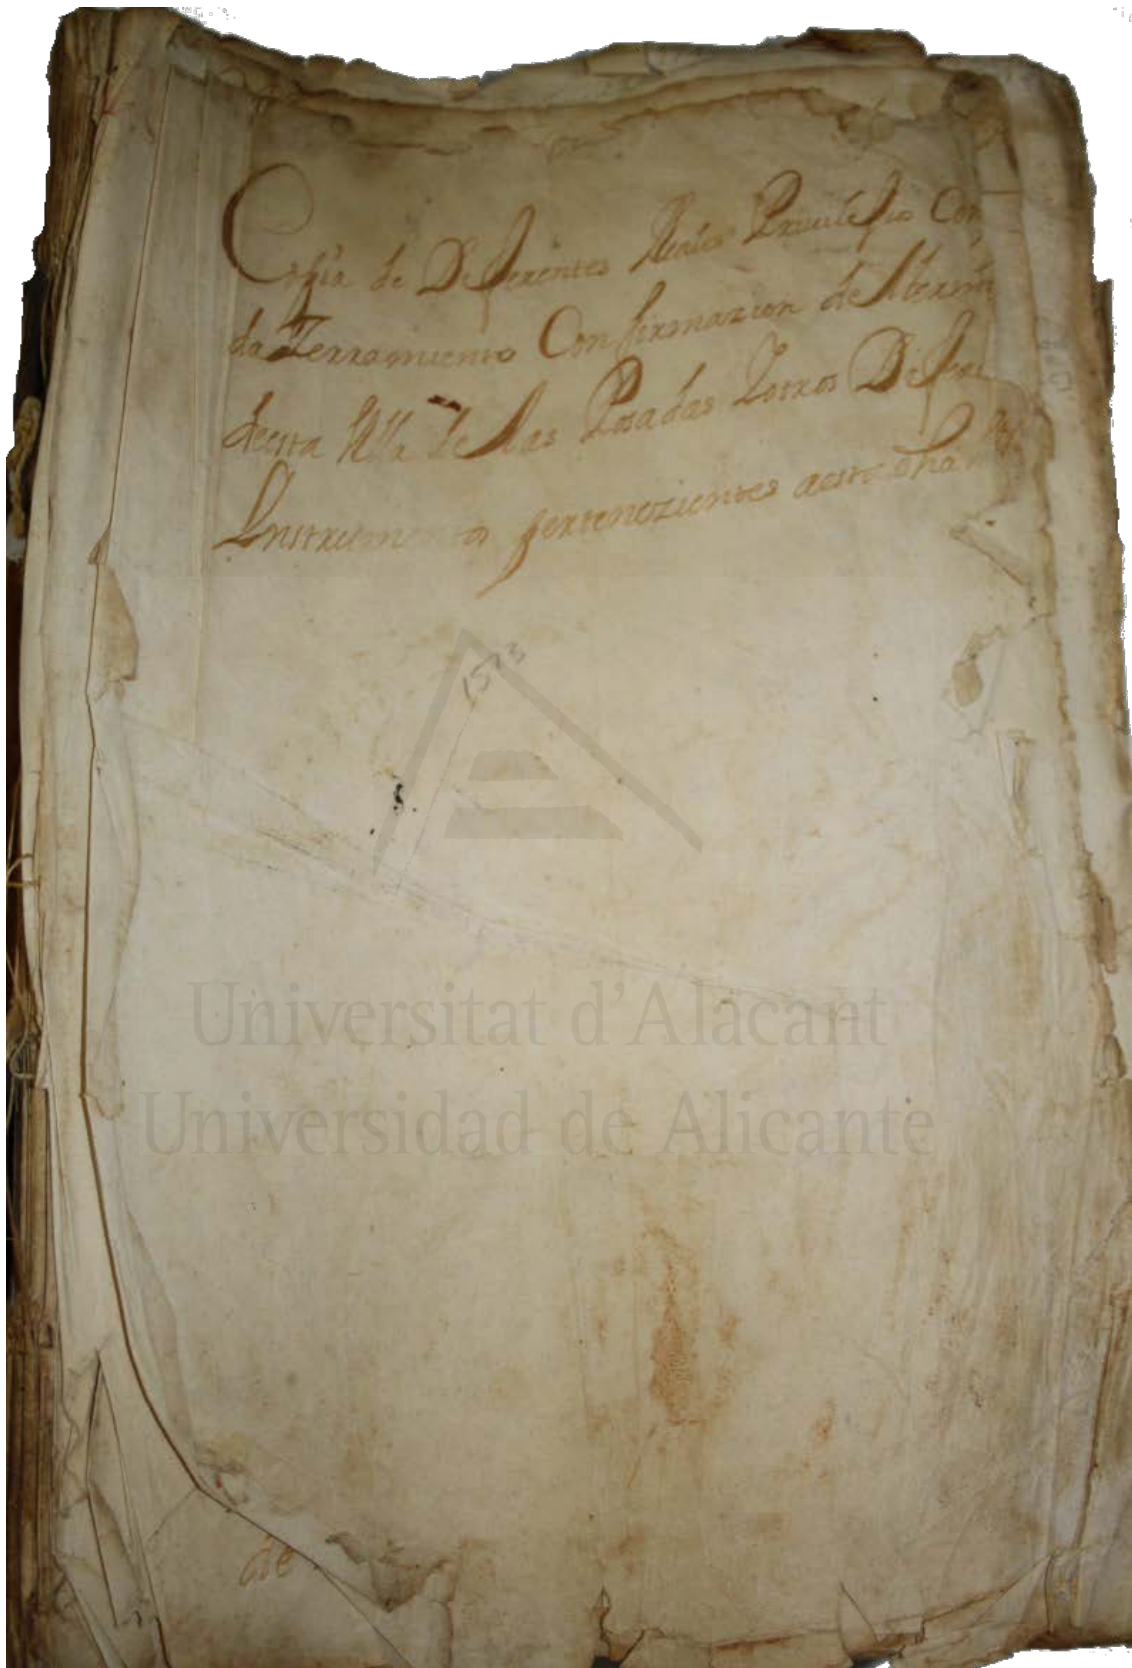 Copia de Diferentes Reales Privilefios Con
da Ferramiento Confirmazion de Aterm
desta Villa de las Posadas Yotros Difer
Ynstrumentos pertenezientes aesta dha
1573
Universitat d'Alacant
Universidad de Alicante
de